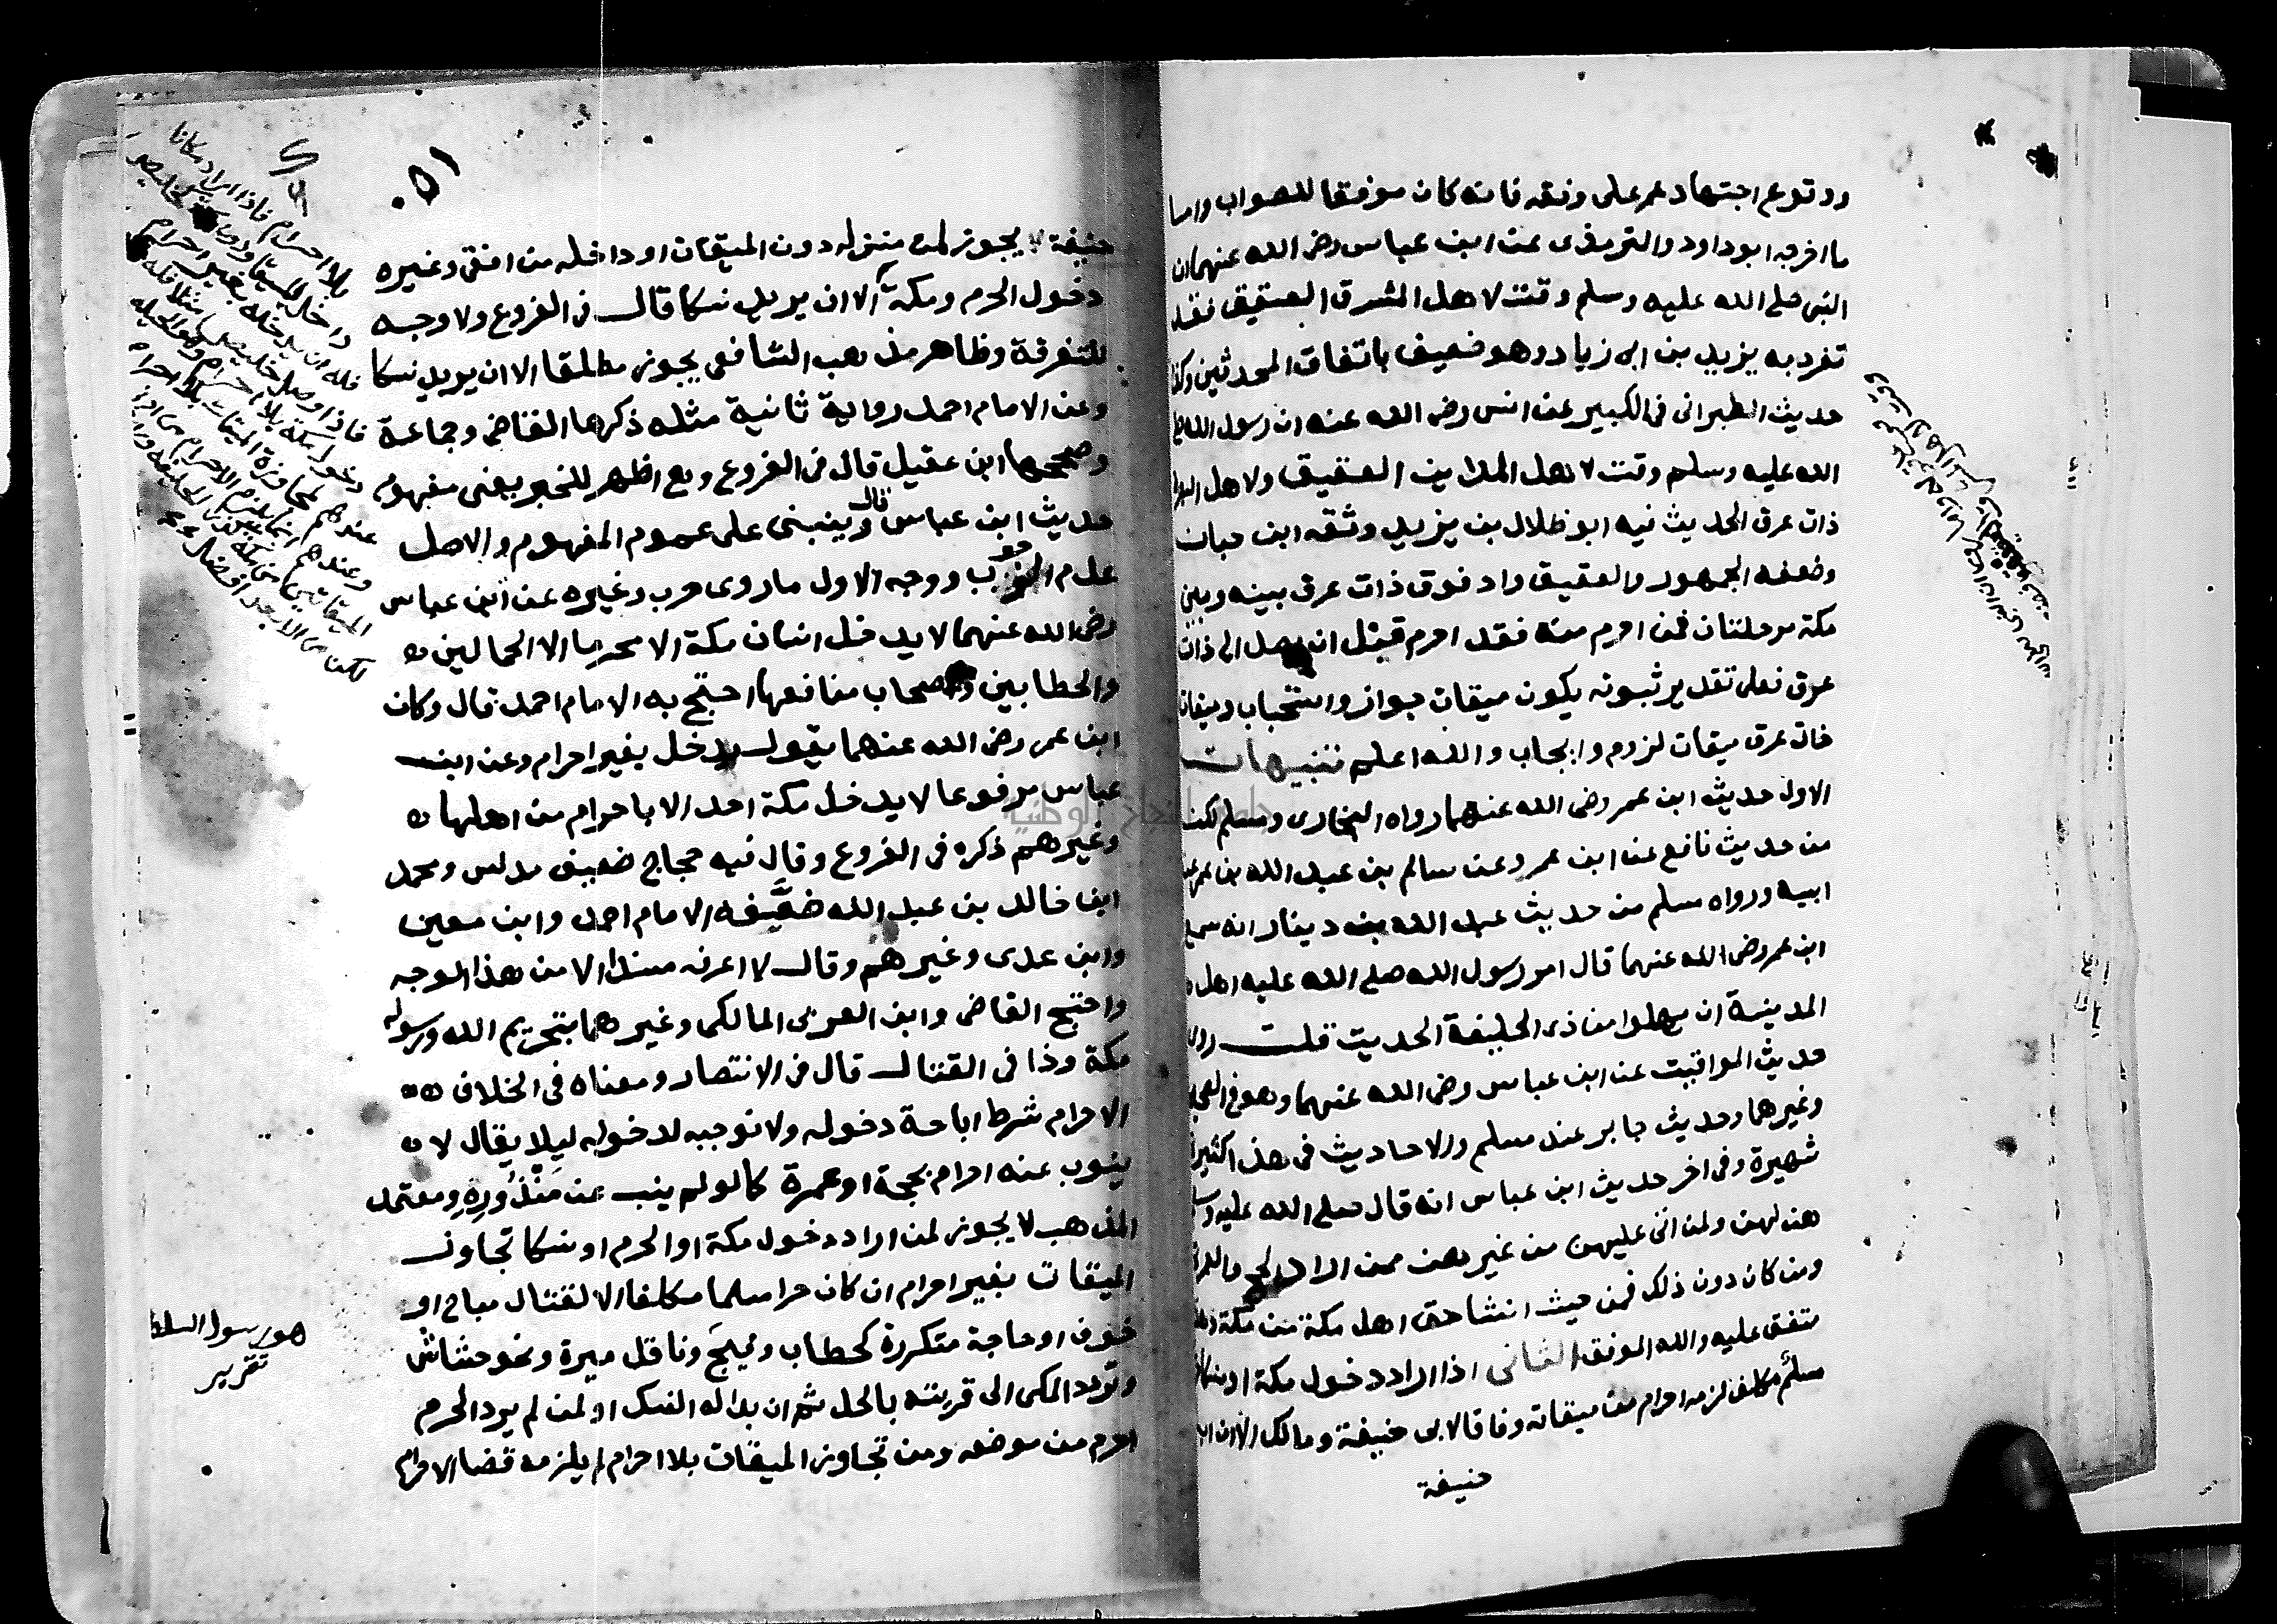 ووقوع اجتهاد عمر على وفقه فانه كان موفقا للصواب واما
ما اخرجه ابو داود والترمذى عن ابن عباس رضى الله عنهما ان
النبى صلى الله عليه وسلم وقت لاهل المشرق العقيق فقد
تفرد به يزيد بن ابى زياد وهو ضعيف باتفاق المحدثين وكذا
حديث الطبرانى فى الكبير عن انس رضى الله عنه ان رسول الله صلى
الله عليه وسلم وقت لاهل المداين العقيق ولاهل البصرة
ذات عرق الحديث فيه ابو ظلال بن يزيد وثقه ابن حبان
وضعفه الجمهور والعقيق واد فوق ذات عرق بينه وبين
مكة مرحلتان فمن احرم منه فقد احرم قبل ان يصل الى ذات
عرق فعلى تقدير ثبوته يكون ميقات جواز واستحباب وميقات
ذات عرق ميقات لزوم وايجاب والله اعلم تنبيهات
الاول حديث ابن عمر رضى الله عنهما رواه البخارى ومسلم لكن
من حديث نافع عن ابن عمر وعن سالم بن عبد الله بن عمر عن
ابيه ورواه مسلم من حديث عبد الله بن دينار انه سمع
ابن عمر رضى الله عنهما قال امر رسول الله صلى الله عليه اهل
المدينة ان يهلوا من ذى الحليفة الحديث قلت
حديث المواقيت عن ابن عباس رضى الله عنهما وهو فى
وغيرهما وحديث جابر عند مسلم والاحاديث فى هذا كثيرة
شهيرة وفى اخر حديث ابن عباس انه قال صلى الله عليه وسلم
هن لهن ولمن اتى عليهن من غيرهن ممن اراد الحج والعمرة
ومن كان دون ذلك فمن حيث انشا حتى اهل مكة من مكة
متفق عليه والله الموفق الثانى اذا اراد دخول مكة او نسكا
مسلم مكلف لزمه احرام من ميقاته وفاقا لابى حنيفة ومالك الا ان
حنيفة
٥١
حنيفة لا يجوز لمن منزله دون الميقات او داخله من افقى وغيره
دخول الحرم ومكة الا ان يريد نسكا قال فى الفروع ولا وجه
للتفرقة وظاهر مذهب الشافعى يجوز مطلقا الا ان يريد نسكا
وعن الامام احمد رواية ثانية مثله ذكرها القاضى وجماعة
وصححها ابن عقيل قال فى الفروع وهى اظهر للخبر يعنى مفهوم
حديث ابن عباس قال وينبنى على عموم المفهوم والاصل
عدم الوجوب ووجه الاول ما روى حرب وغيره عن ابن عباس
رضى الله عنهما لا يدخل انسان مكة الا محرما الا الحمالين
والحطابين واصحاب منافعها احتج به الامام احمد قال وكان
ابن عمر رضى الله عنهما يقول يدخل بغير احرام وعن ابن
عباس مرفوعا لا يدخل مكة احد الا باحرام من اهلها
وغيرهم ذكره فى الفروع وقال فيه حجاج ضعيف مدلس ومحمد
ابن خالد بن عبد الله ضعفه الامام احمد وابن معين
وابن عدى وغيرهم وقال لا اعرفه مسندا الا من هذا الوجه
واحتج القاضى وابن العربى المالكى وغيرهما بتحريم الله ورسوله
مكة وذا فى القتال قال فى الانتصار ومعناه فى الخلاف
الاحرام شرط اباحة دخوله ولا نوجبه لدخوله ليلا يقال لا
ينوب عنه احرام بحجة او عمرة كما لو لم ينب عن منذوره ومعتمد
المذهب لا يجوز لمن اراد دخول مكة او الحرم او نسكا تجاوز
الميقات بغير احرام ان كان حرا مسلما مكلفا الا لقتال مباح او
خوف او حاجة متكررة كحطاب وفيج وناقل ميرة ونحو حشاش
وتردد المكى الى قريته بالحل ثم ان بدا له النسك او لمن لم يرد الحرم
احرم من موضعه ومن تجاوز الميقات بلا احرام لم يلزمه قضا الاحرام
بلا احرام فاذا اراد مكانا
فله ان يدخله بغير احرام
دخول مكة بلا احرام وهو الحيلة
هو رسول السلطان
تقرير